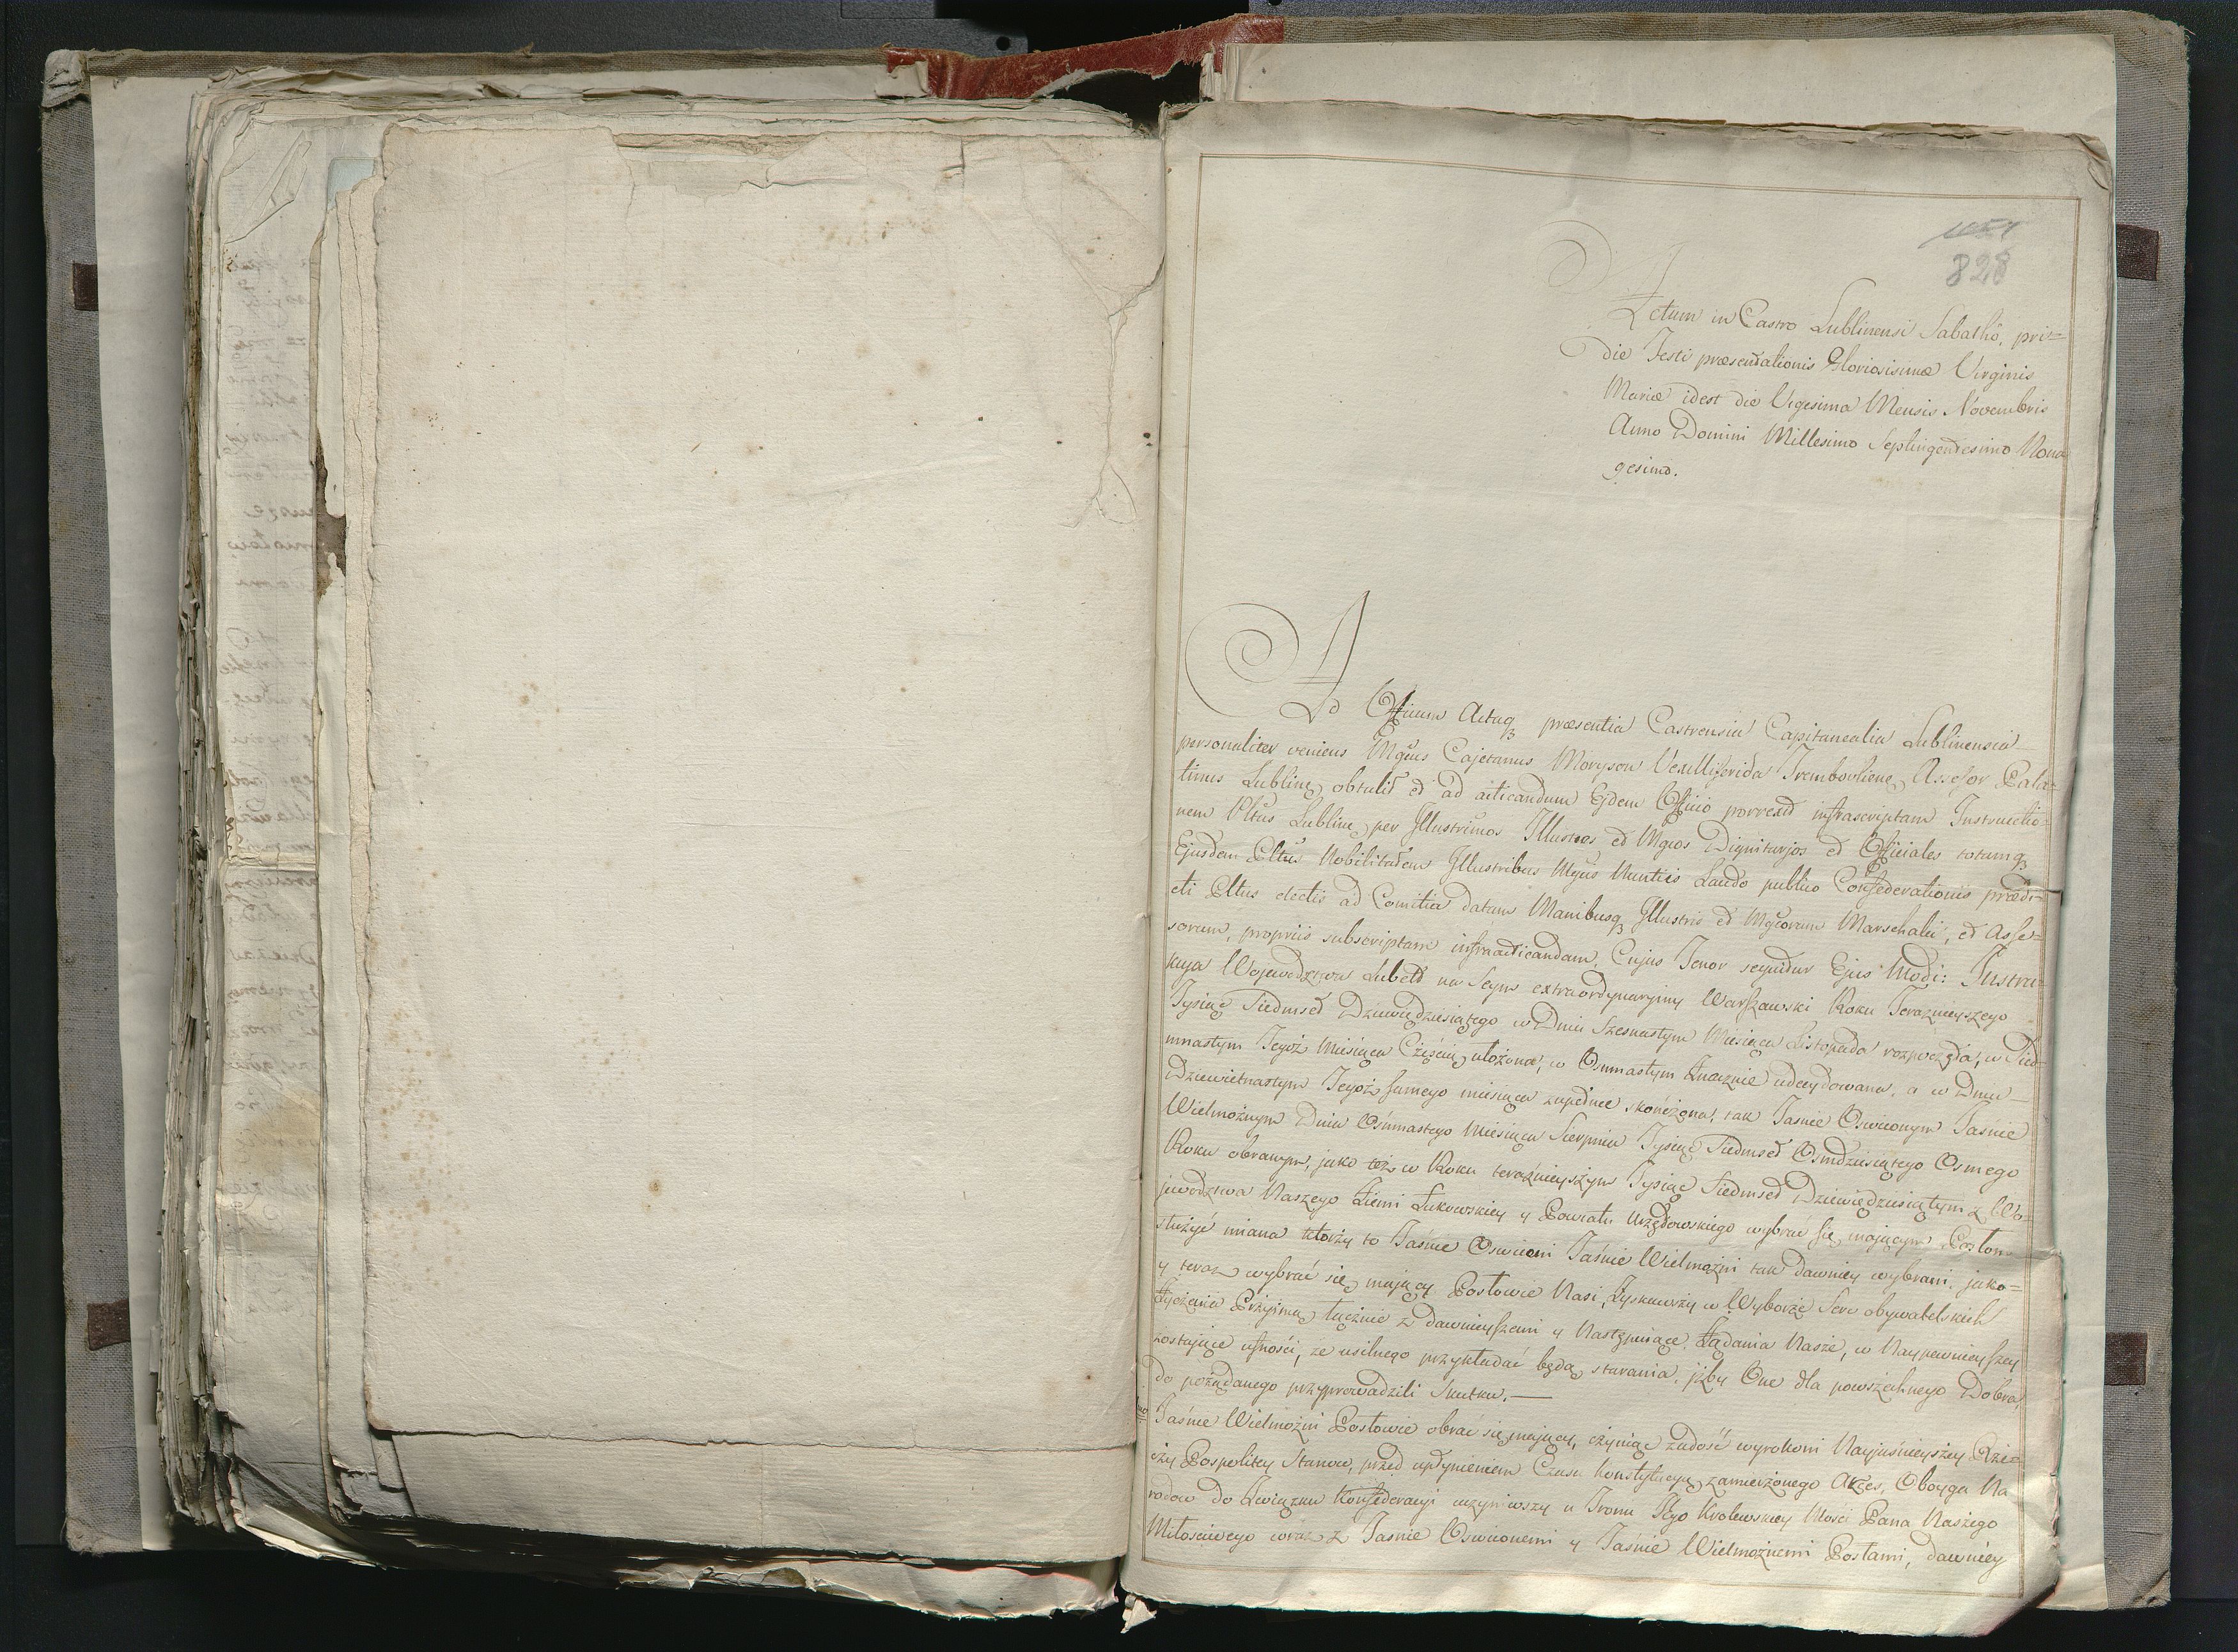 828
Actum in Castro Lublinensi Sabatho, pri=
die Festi præsentationis Gloriosissimæ Virginis
Mariæ idest die Vigesima Mensis Novembris
Anno Domini Millesimo Septingentesimo Nona
gesimo.
Ad Officium Actaq3 præsentia Castrensia Capitanealia Lublinensia
personaliter veniens Mgcus Cajetanus Moryson Vexilliferida Tremblovliens, Assesor Pala=
tinus Lublinę, obtulit et ad acticandum Ejdem Officio porrexit infrascriptam Instructio=
nem Pltus Lublinę per Jllustrimos Jllustres et Mgcos Dignitarjos et Officiales totamq3
Ejusdem Pltus Nobilitatem Jllustribus Mgcis Nuntiis Laudo publico Confederationis prædi=
cti Pltus electis ad Comitia datam Manibusq3 Jllustris et Mgcorum Marschalci, et Asse=
sorum, propriis subscriptam infraacticandam, Cujus Tenor sequitur Ejus Modi: Jnstru=
kcya Wojewodztwa Lubels na Seym extraordynaryiny Warszawski Roku Teraznieyszego
Tysiąc Siedmset Dziewiędziesiątego w Dniu Szesnastym Miesiąca Listopada rozpoczęta, w Sied=
mnastym Tegoż Miesiąca Częścią ułożona, w Osmnastym Znacznie udecydowana, a w Dniu
Dziewietnastym Tegoż samego miesiąca zupełnie skończona, tak Jasnie Oswieconym Jasnie
Wielmożnym Dnia Ośmnastego Miesiąca Sierpnia Tysiąc Siedmset Osmdziesiątego Osmego
Roku obranym, jako też w Roku teraźnieyszym Tysiąc Siedmset Dziewiędziesiątym z Wo=
jewodztwa Naszego Ziemi Łukowskiey y Powiatu Urzędowskiego wybrać się mającym Posłom
służyć miana którzy to Jaśnie Oswieceni Jaśnie Wielmożni tak dawniey wybrani, jako=
y teraz wybrać się mający Posłowie Nasi, Zyskawszy w Wyborze Serc obywatelskich
Zyczenia Przyimą łącznie z dawnieyszemi y Następuiące Ządania Nasze, w Naypewnieyszey
zostające ufności, że usilnego przykładać będą starania, jżby One dla powszechnego Dobra,
do pożądanego przyprowadzili Skutku.—
Jaśnie Wielmożni Posłowie obrać się mający, czyniąc zadość wyrokom Nayjaśnieyszey Rze=
czy Pospolitey Stanow, przed upłynieniem Czasu Konstytucyą zamierzonego Akces, Oboyga Na
rodow do Związku Konfederacyi uczyniwszy u Tronu Jego Krolewskiey Mości Pana Naszego
Miłościwego wraz z Jasnie Oswieconemi y Jaśnie Wielmożnemi Posłami, dawniey